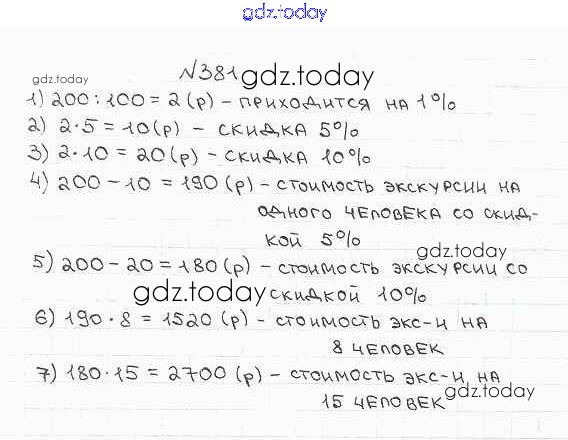 gdz.today
№381 gdz.today
gdz.today
1) 200 : 100 = 2 (р) – приходится на 1%
2) 2·5 = 10 (р) – скидка 5%
3) 2·10 = 20 (р) – скидка 10%
4) 200 – 10 = 190 (р) – стоимость экскурсии на
одного человека со скид-
кой 5%
gdz.today
5) 200 – 20 = 180 (р) – стоимость экскурсии со
gdz.today скидкой 10%
6) 190 · 8 = 1520 (р) – стоимость экс-и на
8 человек
7) 180·15 = 2700 (р) – стоимость экс-и на
gdz.today
15 человек